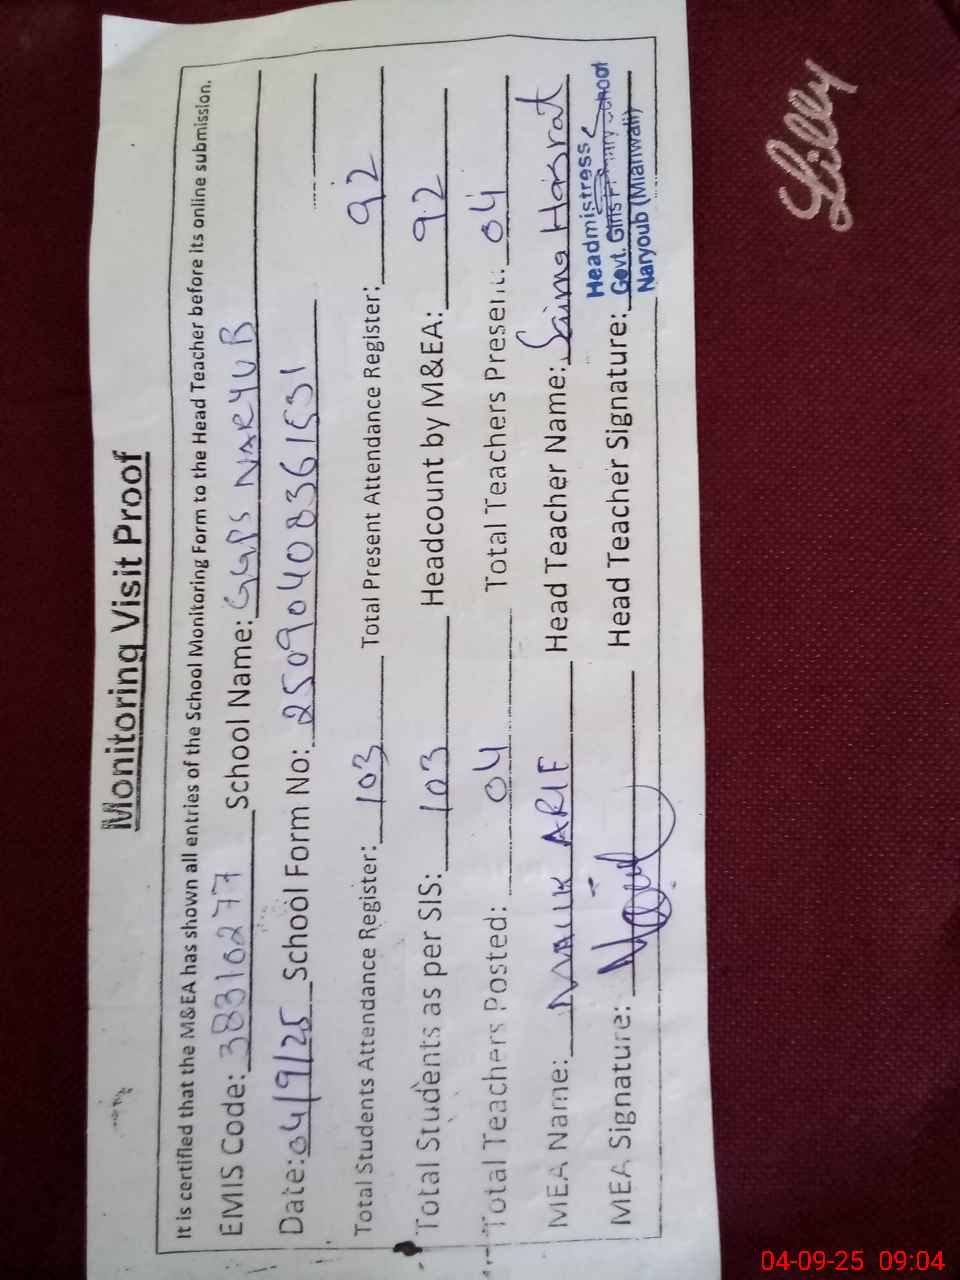 Monitoring Visit Proof
It is certified that the M&EA has shown all entries of the School Monitoring Form to the Head Teacher before its online submission.
EMIS Code: 38310277 School Name: GGPS NARYUB
Date: 04/9/25 School Form No: 25090408361531
Total Students Attendance Register: 103 Total Present Attendance Register: 92
Total Students as per SIS: 103 Headcount by M&EA: 92
Total Teachers Posted: 04 Total Teachers Present: 04
MEA Name: MALIK ARIF Head Teacher Name: Saima Hasrat
MEA Signature: Head Teacher Signature:
Headmistress
Govt. Girls Primary School
Naryoub (Mianwali)
Lilly
04-09-25 09:04